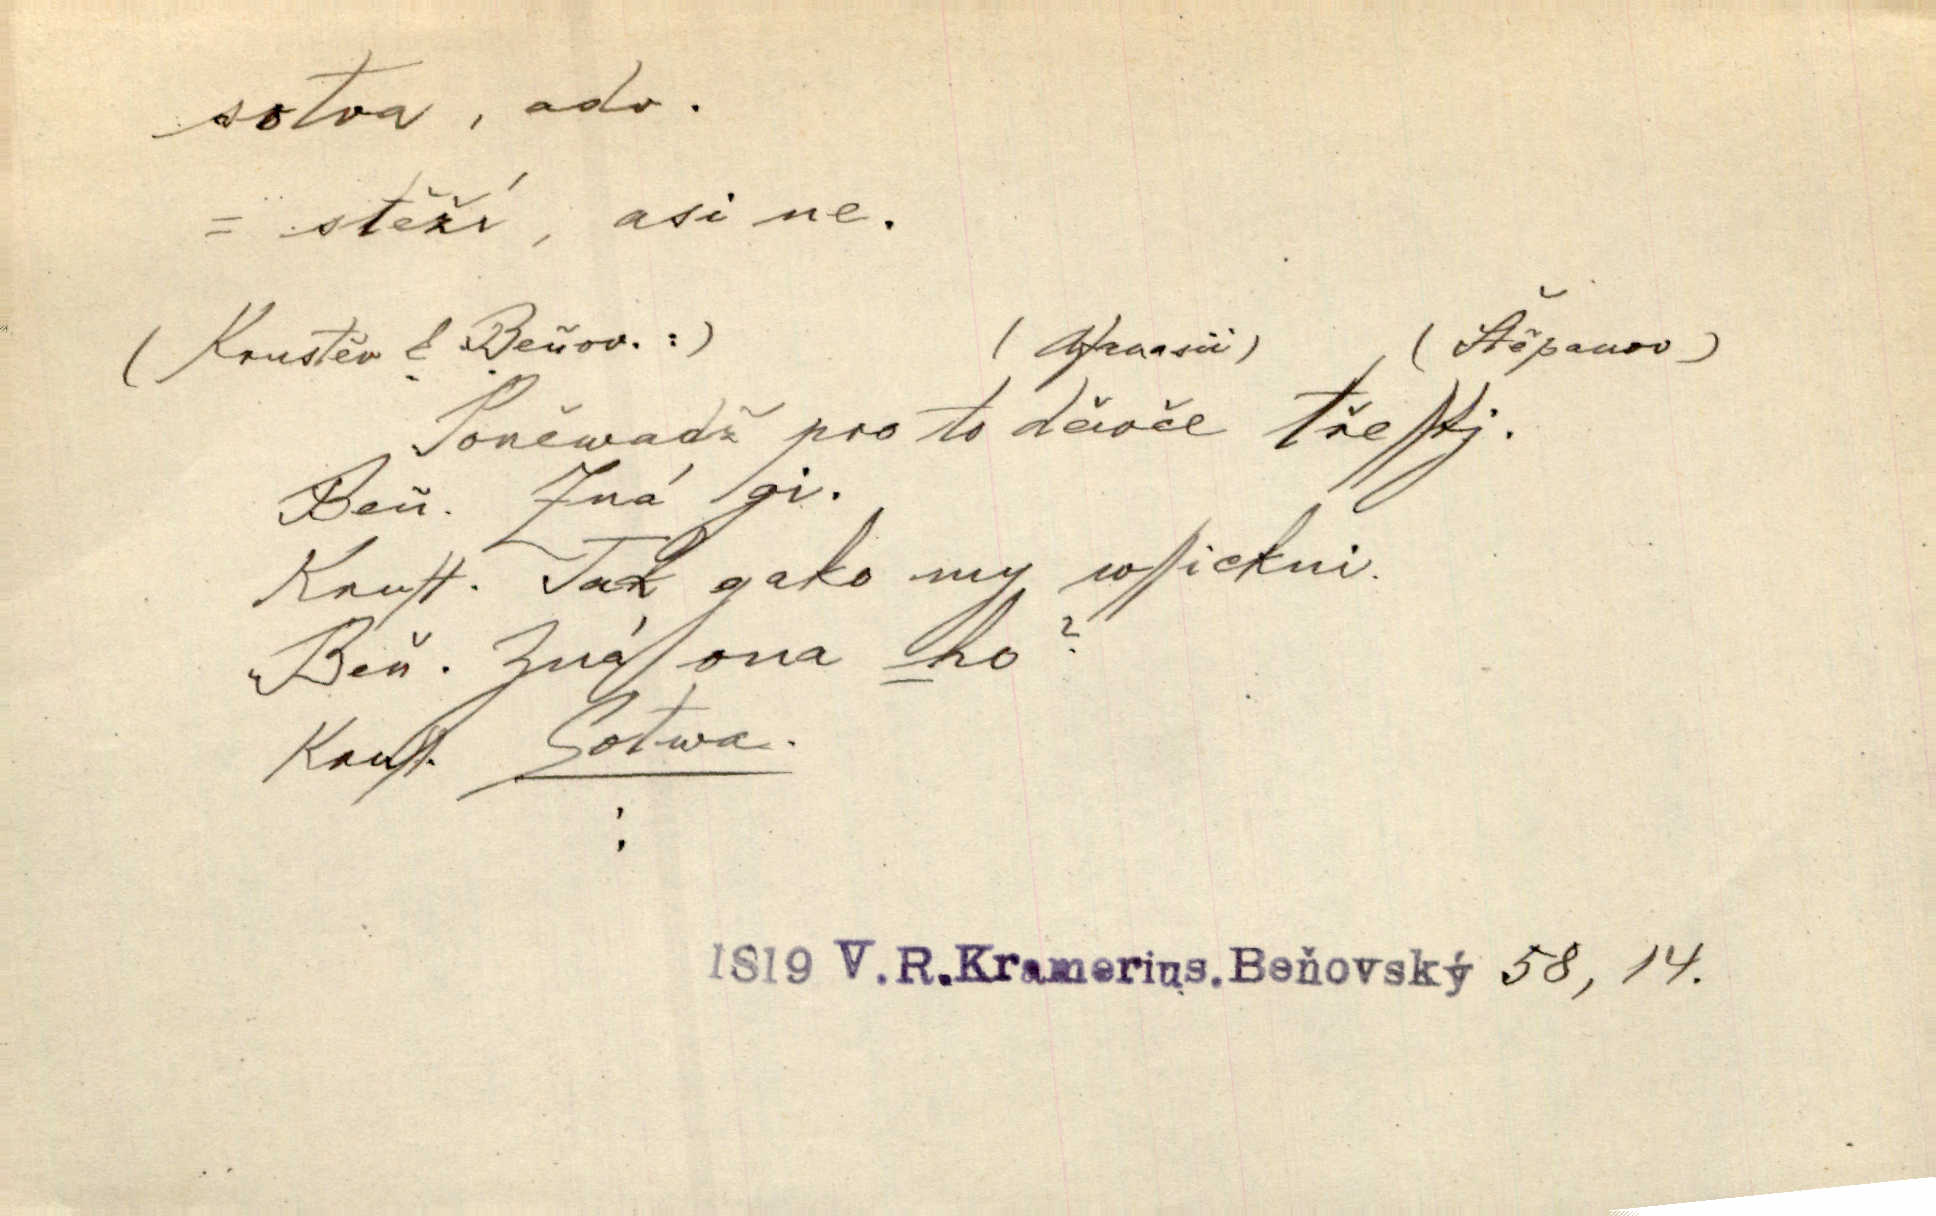 sotva, adv.
= stěží, asi ne.
(Krustěv k Beňov.:) (Afanasii) (Štěpanov)
Poněwadž pro to děwče třeſſtj.
Beň. Zná gi.
Kruſt. Tak gako my wſſickni.
Beň. Znáſſ ona ho?
Kruſt. Sotwa.
:
1819 V.R.Kramerius.Beňovský 58, 14.